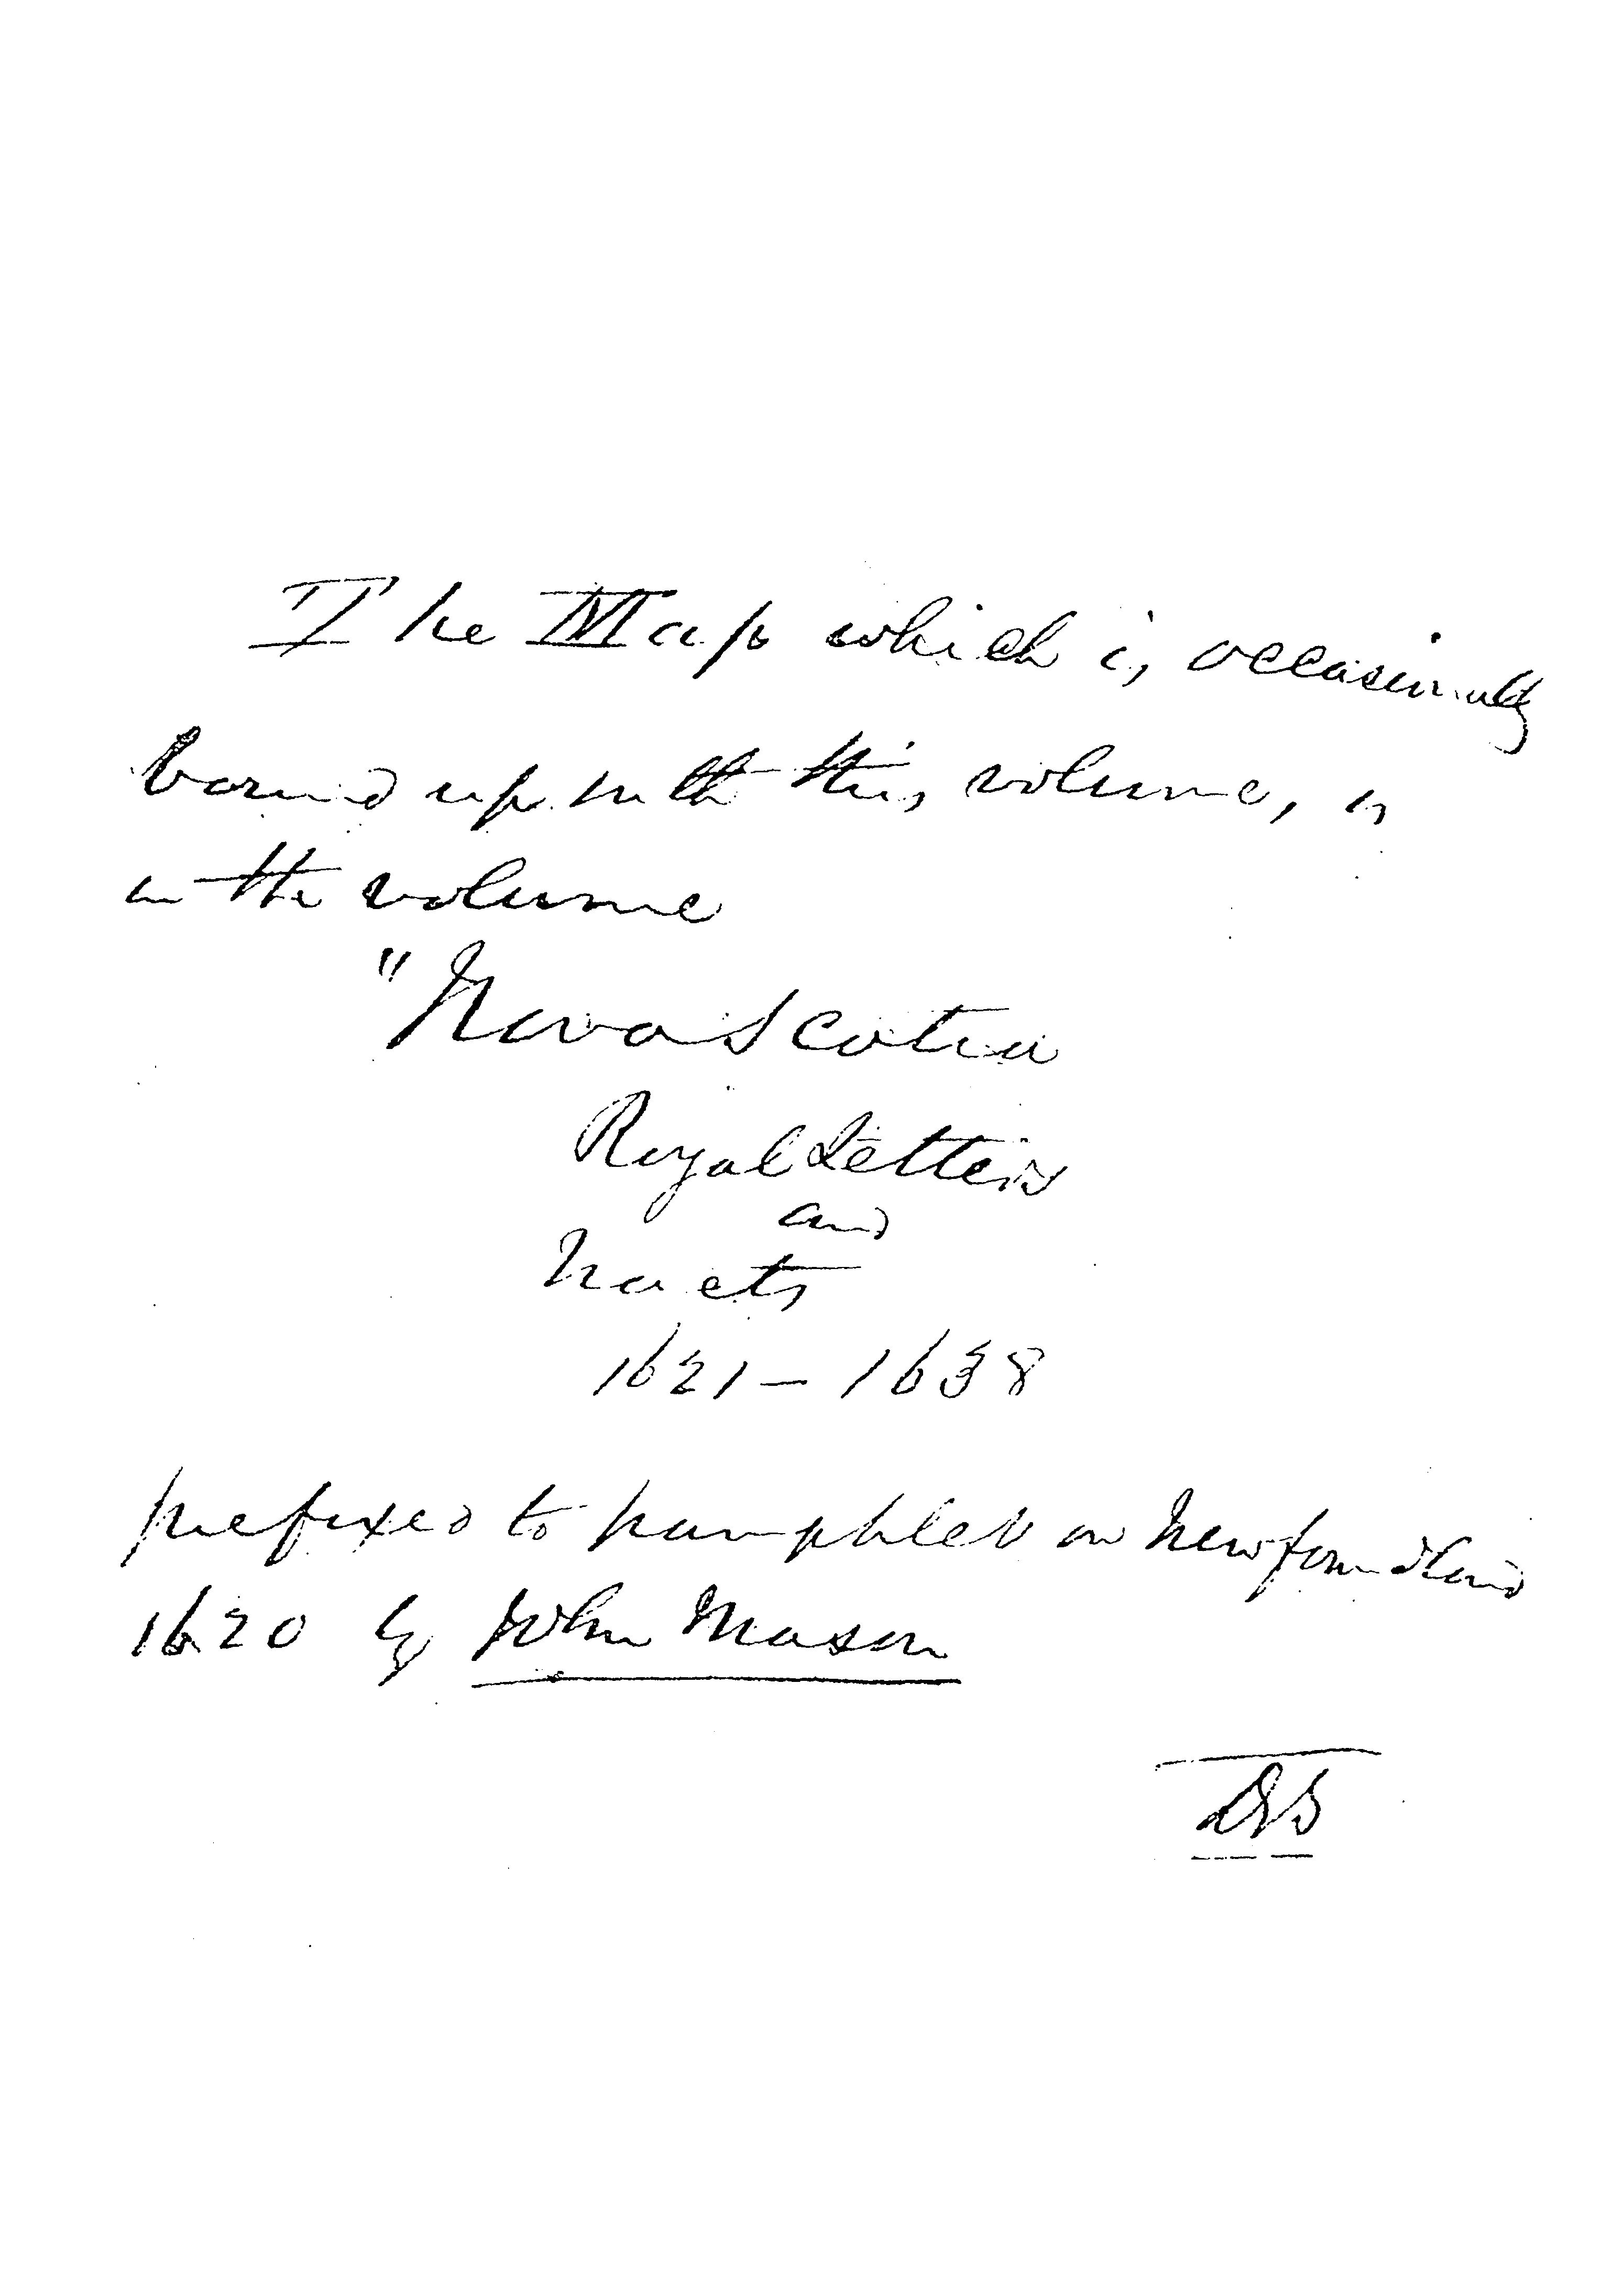 The Map which is occasionally
bound up with this volume, is
in the volume
"Nova Scotia
Royal Letters
and
Tracts
1621 – 1638
prefixed to pamphlet on Newfoundland
1620 by John Mason